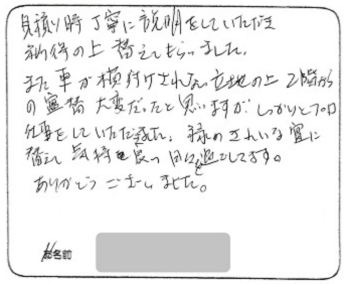 見積り時丁寧に説明をしていただき
納得の上替えてもらいました。
また車が横付けされない立地の上2階から
の畳替大変だったと思いますが、しっかりとプロの
仕事をしていただきました。緑のきれいな畳に
替えて気持良い日々を過ごしてます。
ありがとうございました。
お名前